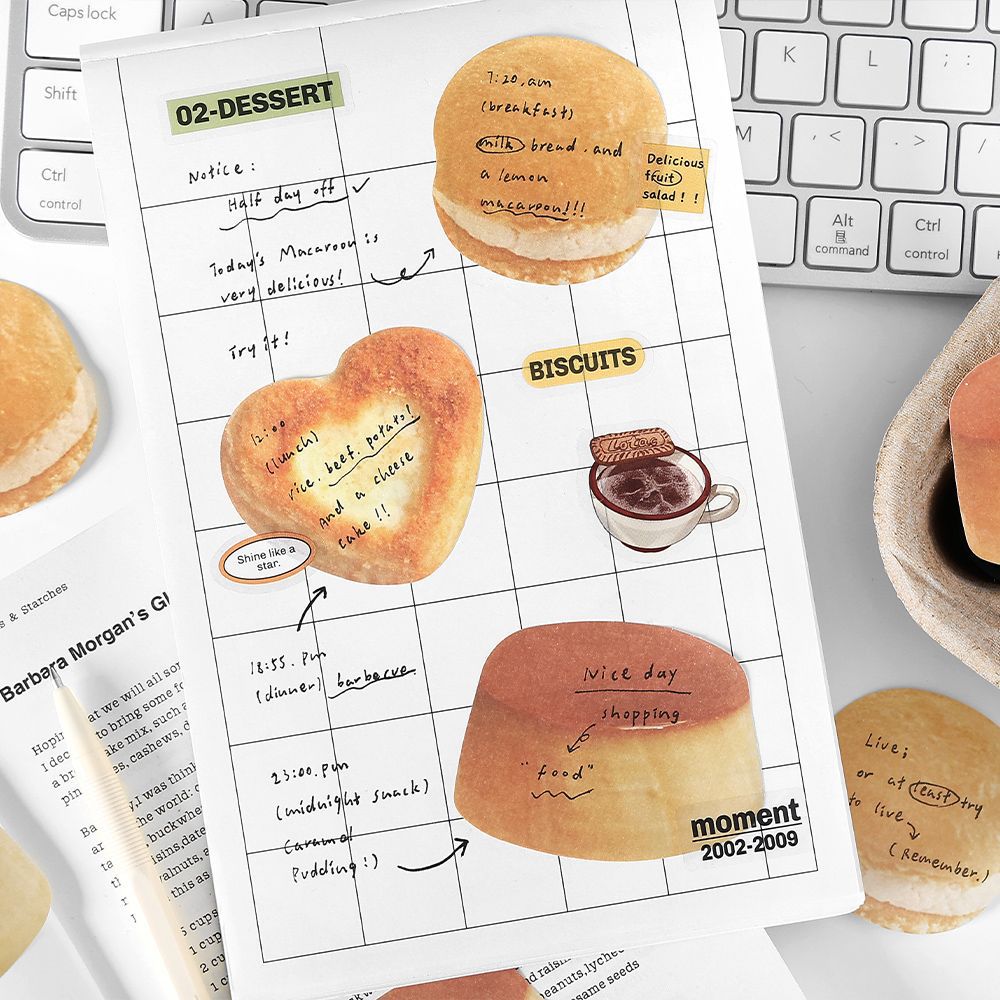 Caps lock
Shift
Ctrl
control
K
L
; :
M
, <
. >
/
Alt
command
Ctrl
control
02-DESSERT
Notice:
Half day off ✓
Today's Macaroon is
very delicious!
Try it!
7:20.am
(breakfast)
milk bread. and
a lemon
macaroon!!!
Delicious
fruit
salad! !
BISCUITS
Lotus
12:00
(lunch)
rice. beef. potato!
And a cheese
cake!!
Shine like a
star.
18:55. pm
(dinner) barbecue
23:00.pm
(midnight snack)
Caramel
Pudding:)
Nice day
shopping
"food"
moment
2002-2009
Live;
or at least try
to live
(Remember.)
s & Starches
Barbara Morgan's Gl
at we will all sor
to bring some fo
ake mix, such a
es, cashews, d
Hopin
I dec
a br
pin
y,I was think
the world: c
buckwhe
isins,date
walnuts, a
this as
5 cups
1 cup
2 cu
1 c
d raisin
peanuts,lychee
same seeds